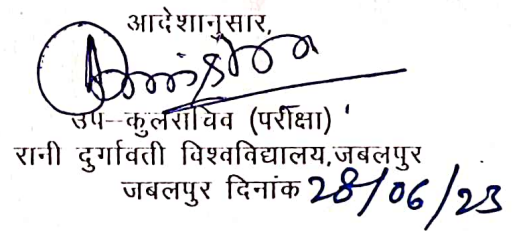 आदेशानुसार,
उप-कुलसचिव (परीक्षा)
रानी दुर्गावती विश्वविद्यालय,जबलपुर
जबलपुर दिनांक 28/06/23